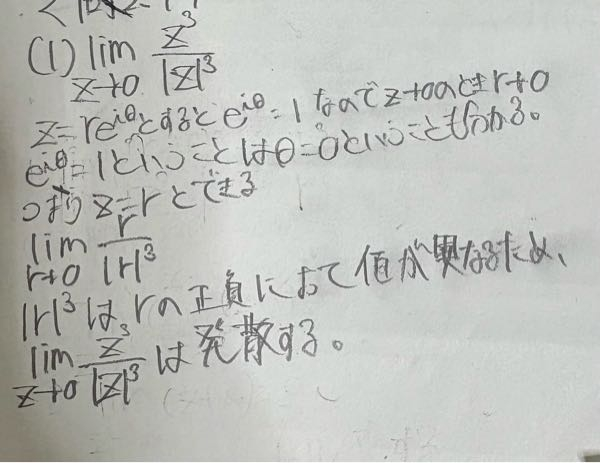 (1) lim z³/|z|³
z→0
z=re^{iθ}とするとe^{iθ}=1なのでz→0のときr→0
e^{iθ}=1ということはθ=0ということも分かる。
つまりz=rとできる
lim r/|r|³
r→0
|r|³はrの正負におて値が異なるため、
lim z³/|z|³は発散する。
z→0